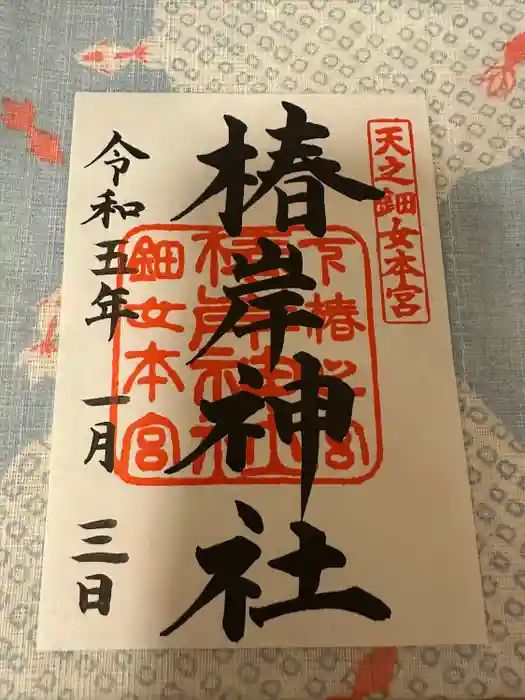 天之鈿女本宮
椿岸神社
鈿女本宮
令和五年 一月 三日